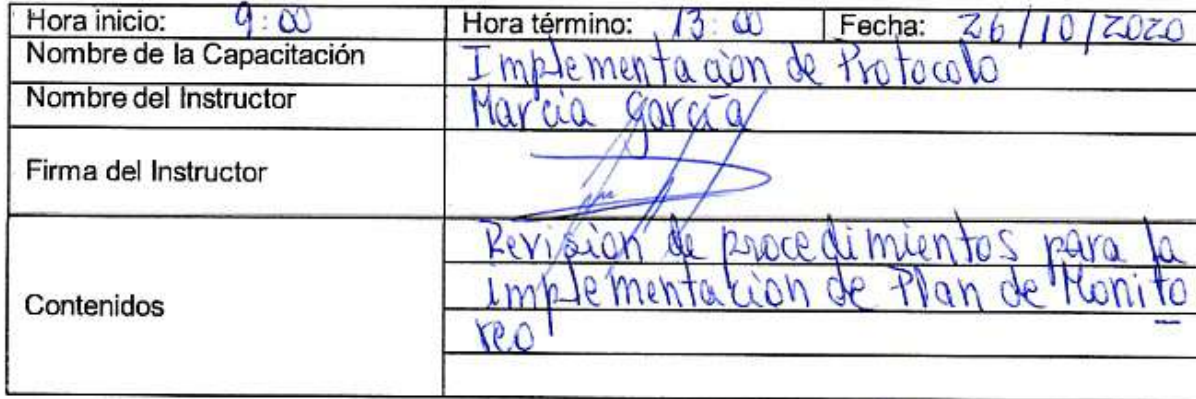 Hora inicio: 9:00 Hora término: 13:00 Fecha: 26/10/2020
Nombre de la Capacitación Implementación de Protocolo
Nombre del Instructor Marcia García
Firma del Instructor
Contenidos
Revisión de procedimientos para la
implementación de Plan de Monito
reo